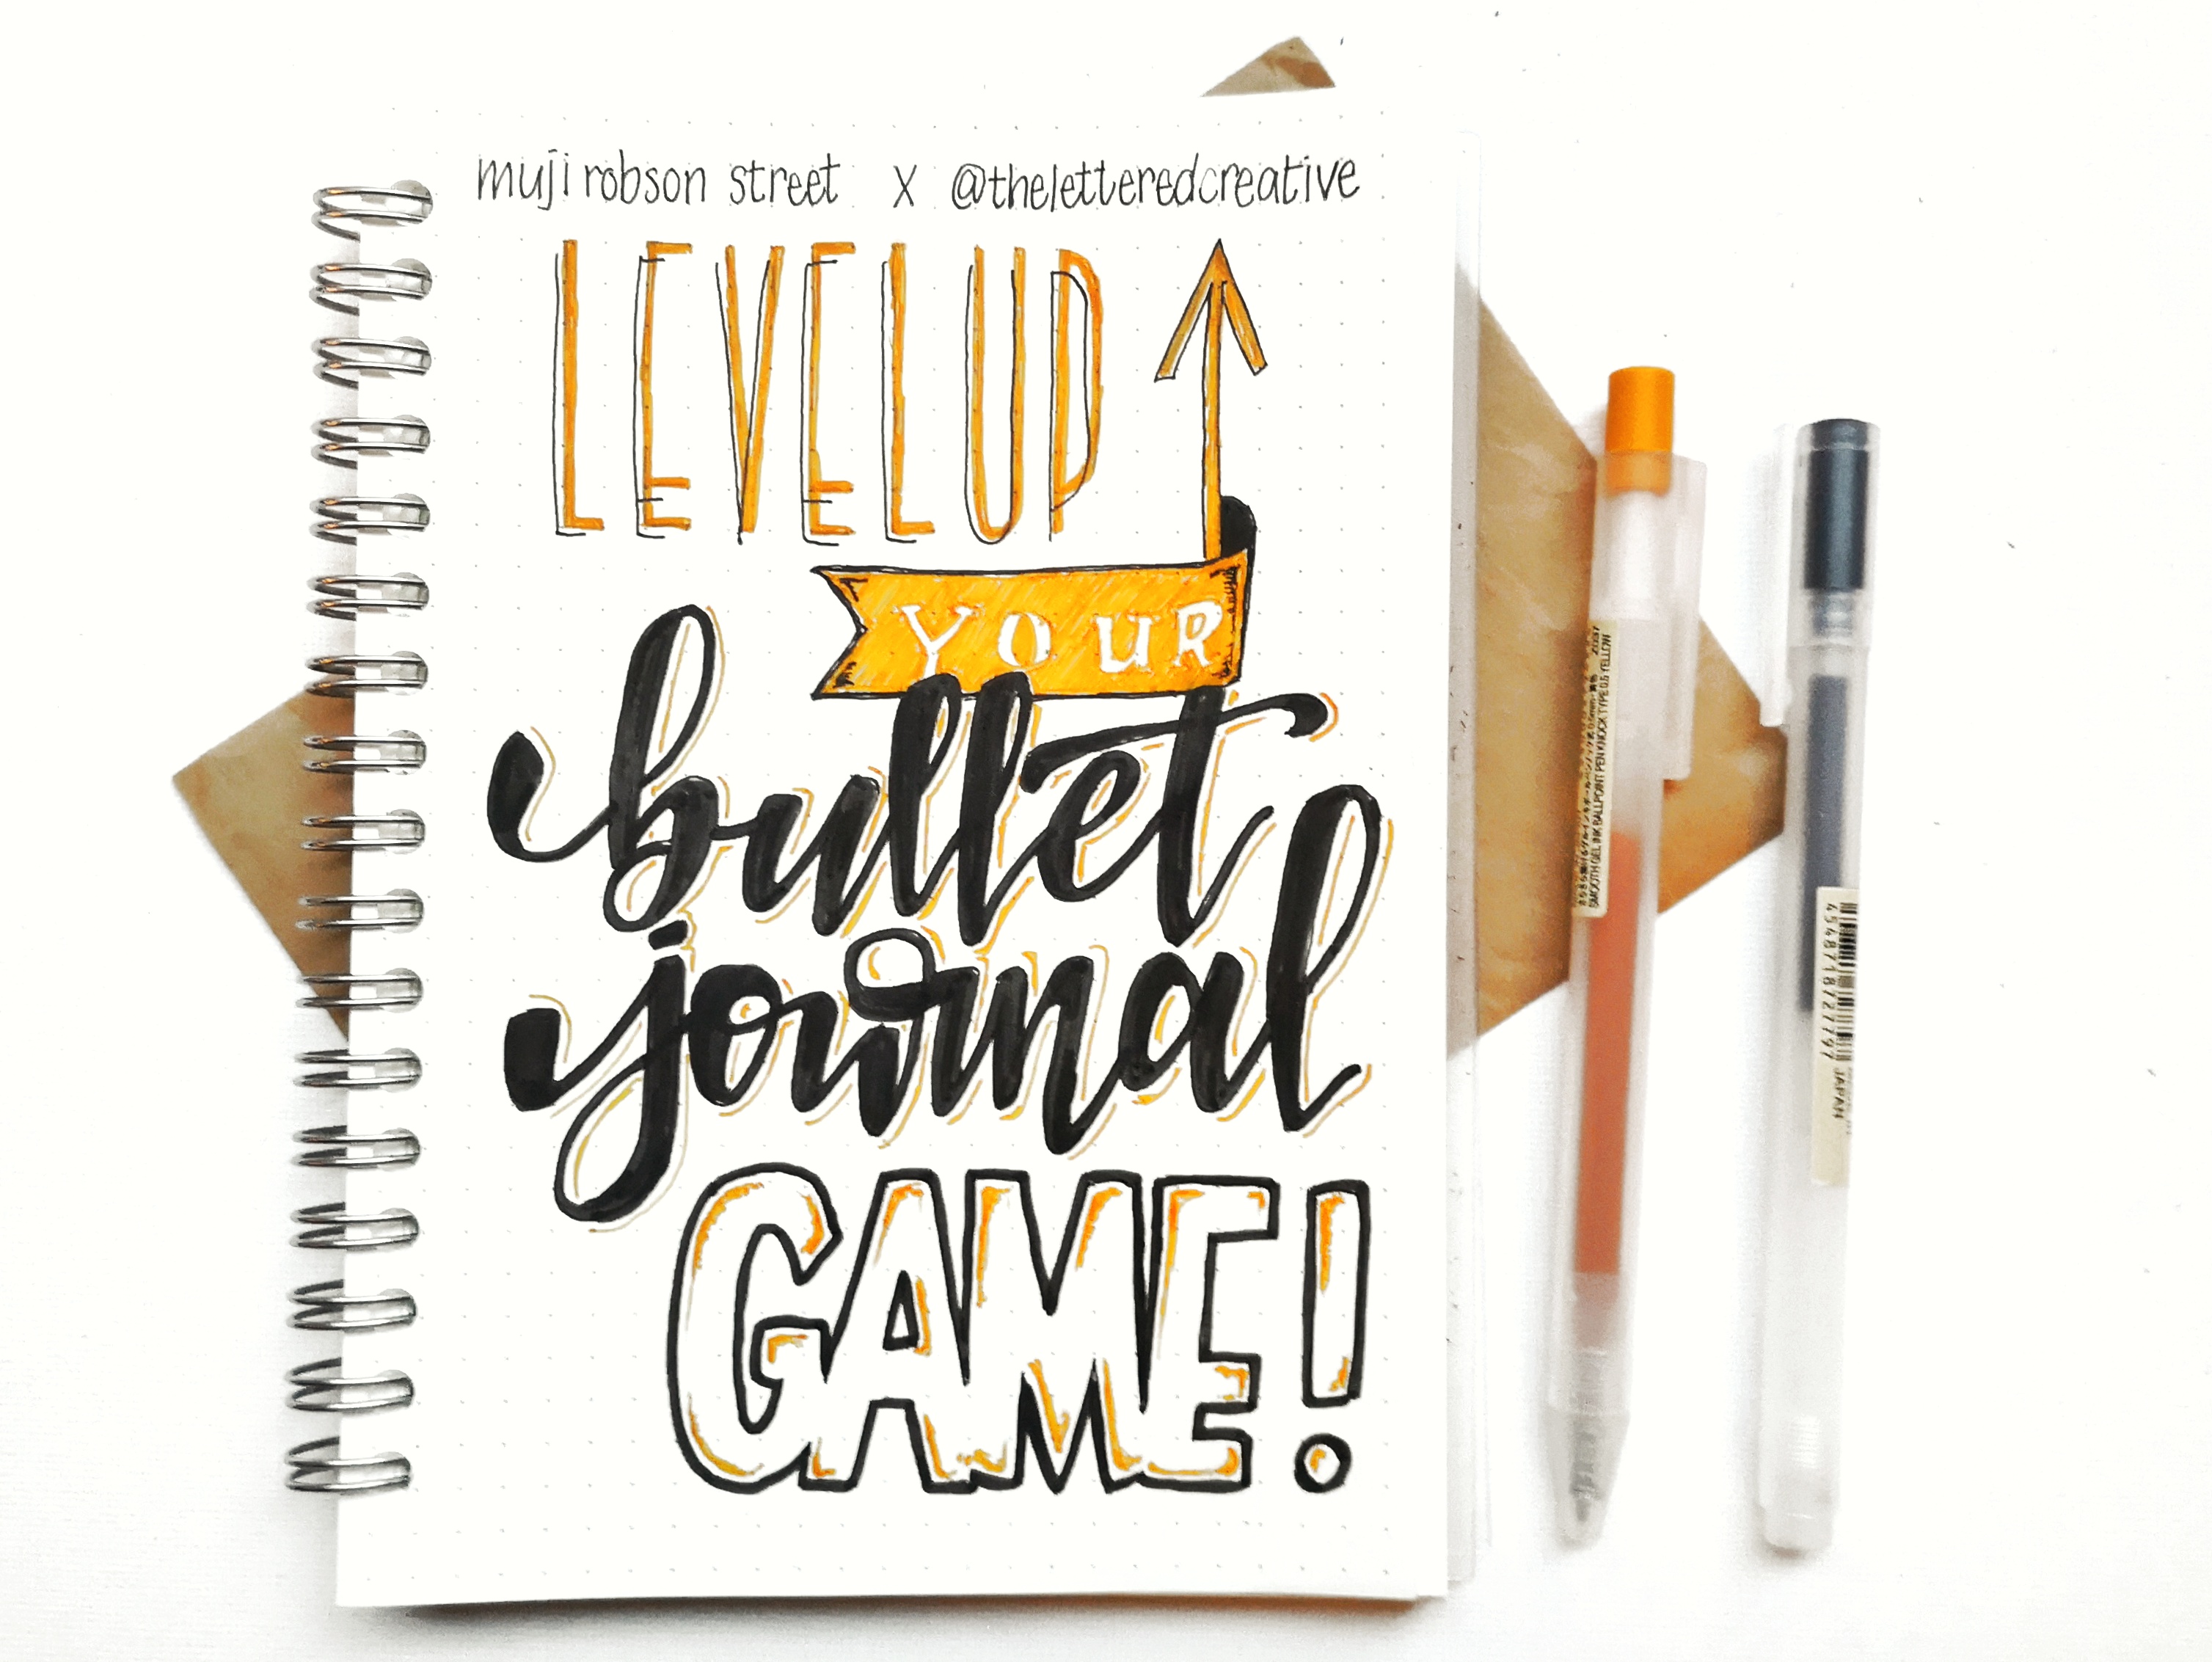 muji robson street x @theletteredcreative
LEVEL UP
YOUR
bullet
journal
GAME!
SMOOTH GEL INK BALLPOINT PEN KNOCK TYPE 0.5 YELLOW
4548718727797
JAPAN